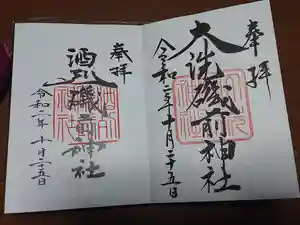 奉拝
大洗磯前神社
令和二年十月二十五日
奉拝
酒列磯前神社
令和二年十月二十五日